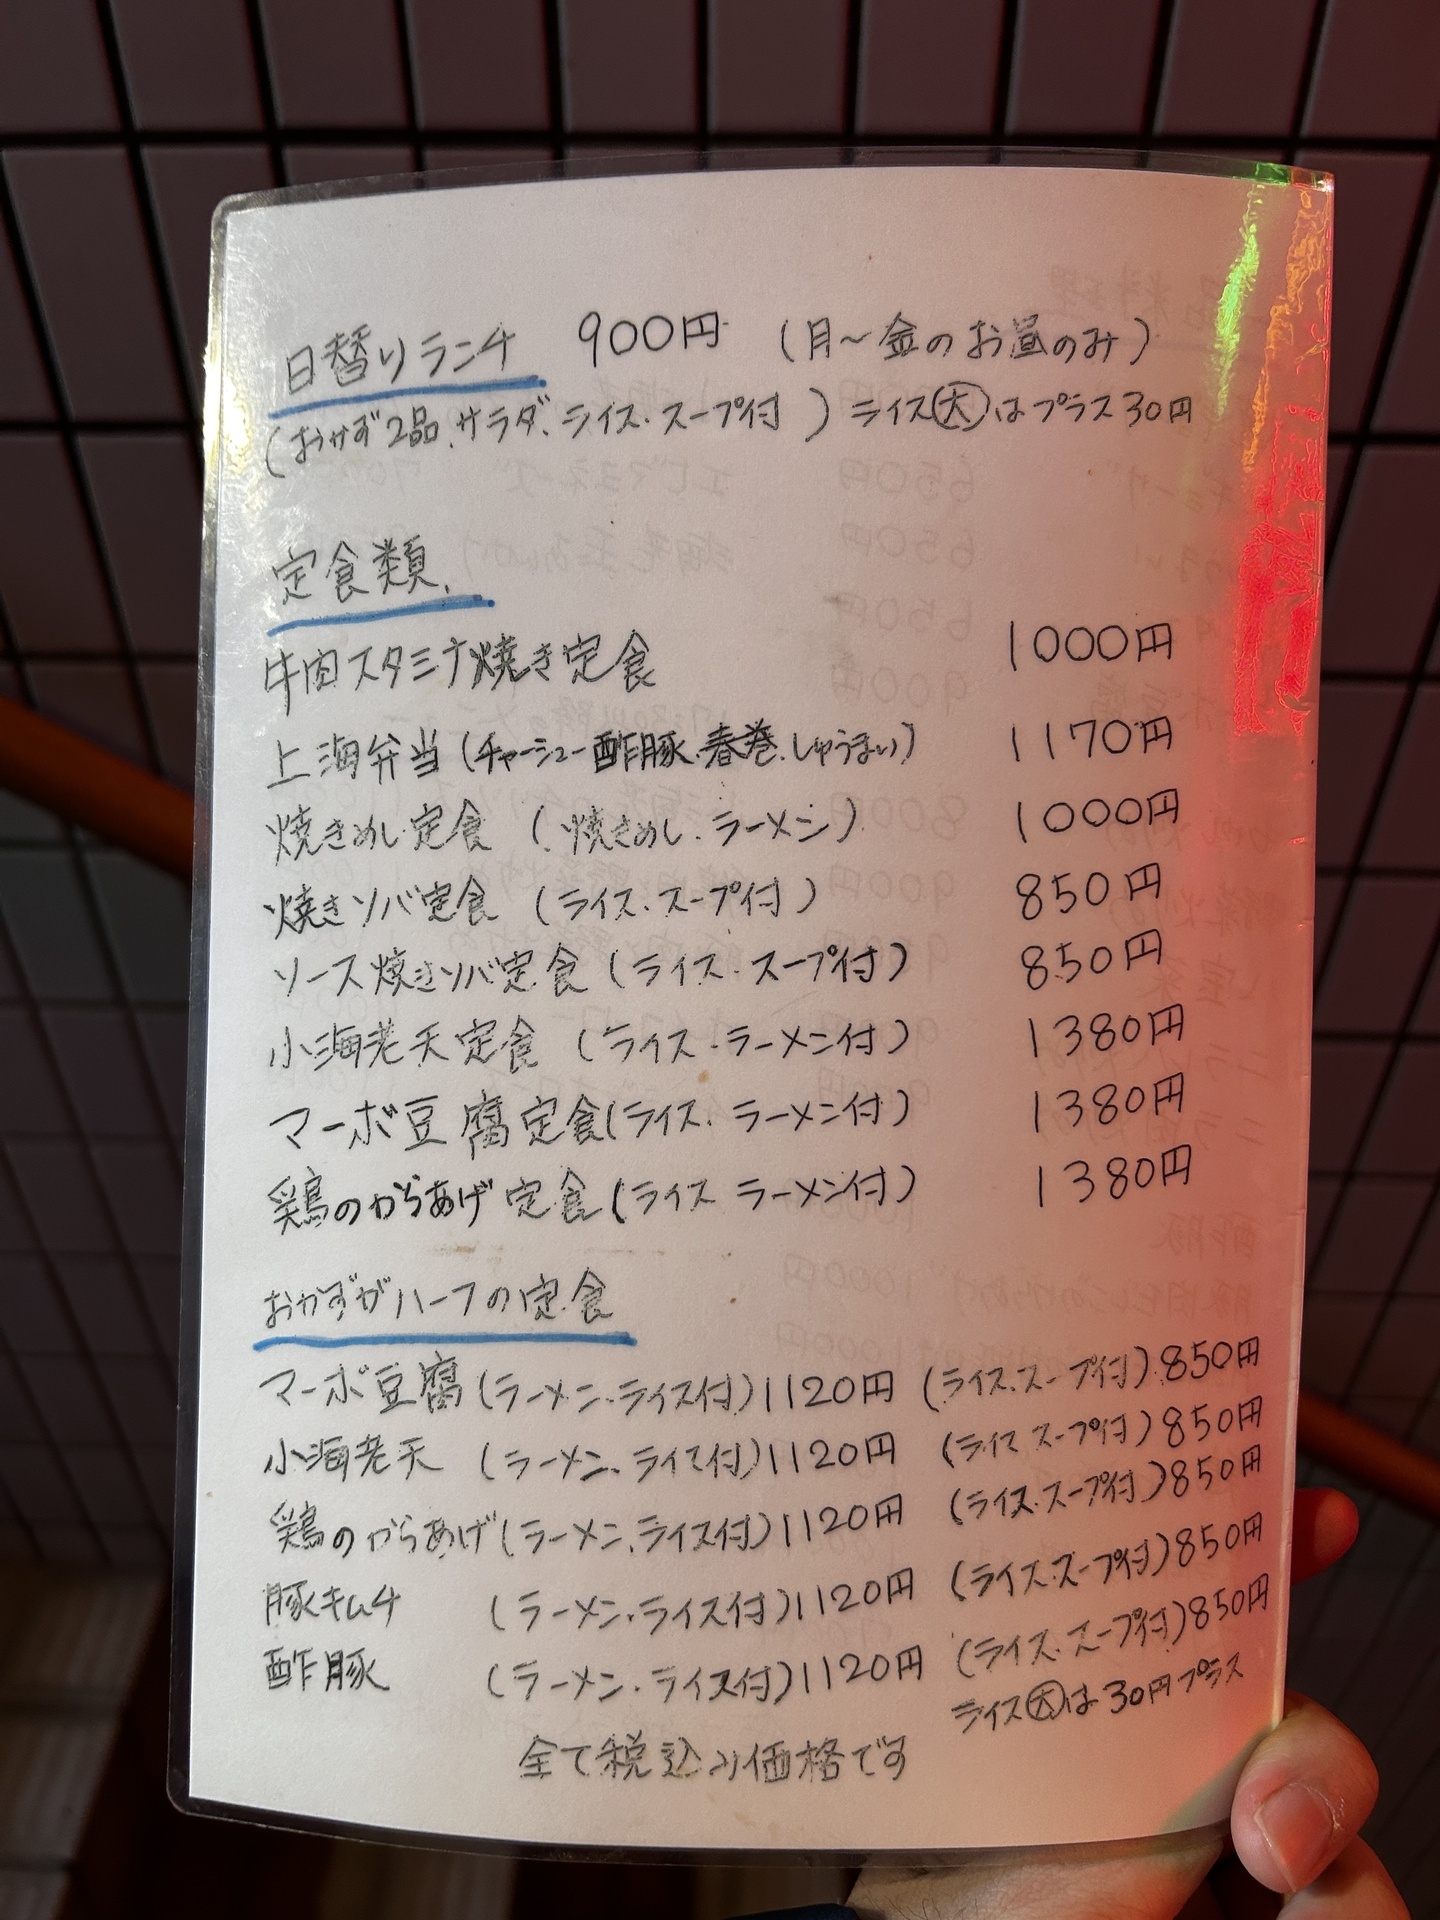 日替りランチ 900円 (月〜金のお昼のみ)
(おかず2品、サラダ、ライス・スープ付) ライス大はプラス30円
定食類
牛肉スタミナ焼き定食 1000円
上海弁当(チャーシュー 酢豚、春巻、しゅうまい) 1170円
焼きめし定食 (焼きめし、ラーメン) 1000円
焼きソバ定食 (ライス・スープ付) 850円
ソース焼きソバ定食(ライス・スープ付) 850円
小海老天定食 (ライス・ラーメン付) 1380円
マーボ豆腐定食(ライス、ラーメン付) 1380円
鶏のからあげ定食(ライス ラーメン付) 1380円
おかずがハーフの定食
マーボ豆腐(ラーメン・ライス付)1120円 (ライス・スープ付)850円
小海老天 (ラーメン、ライス付)1120円 (ライス スープ付)850円
鶏のからあげ(ラーメン、ライス付)1120円 (ライス・スープ付)850円
豚キムチ (ラーメン・ライス付)1120円 (ライス・スープ付)850円
酢豚 (ラーメン・ライス付)1120円 (ライス・スープ付)850円
ライス大は30円プラス
全て税込み価格です